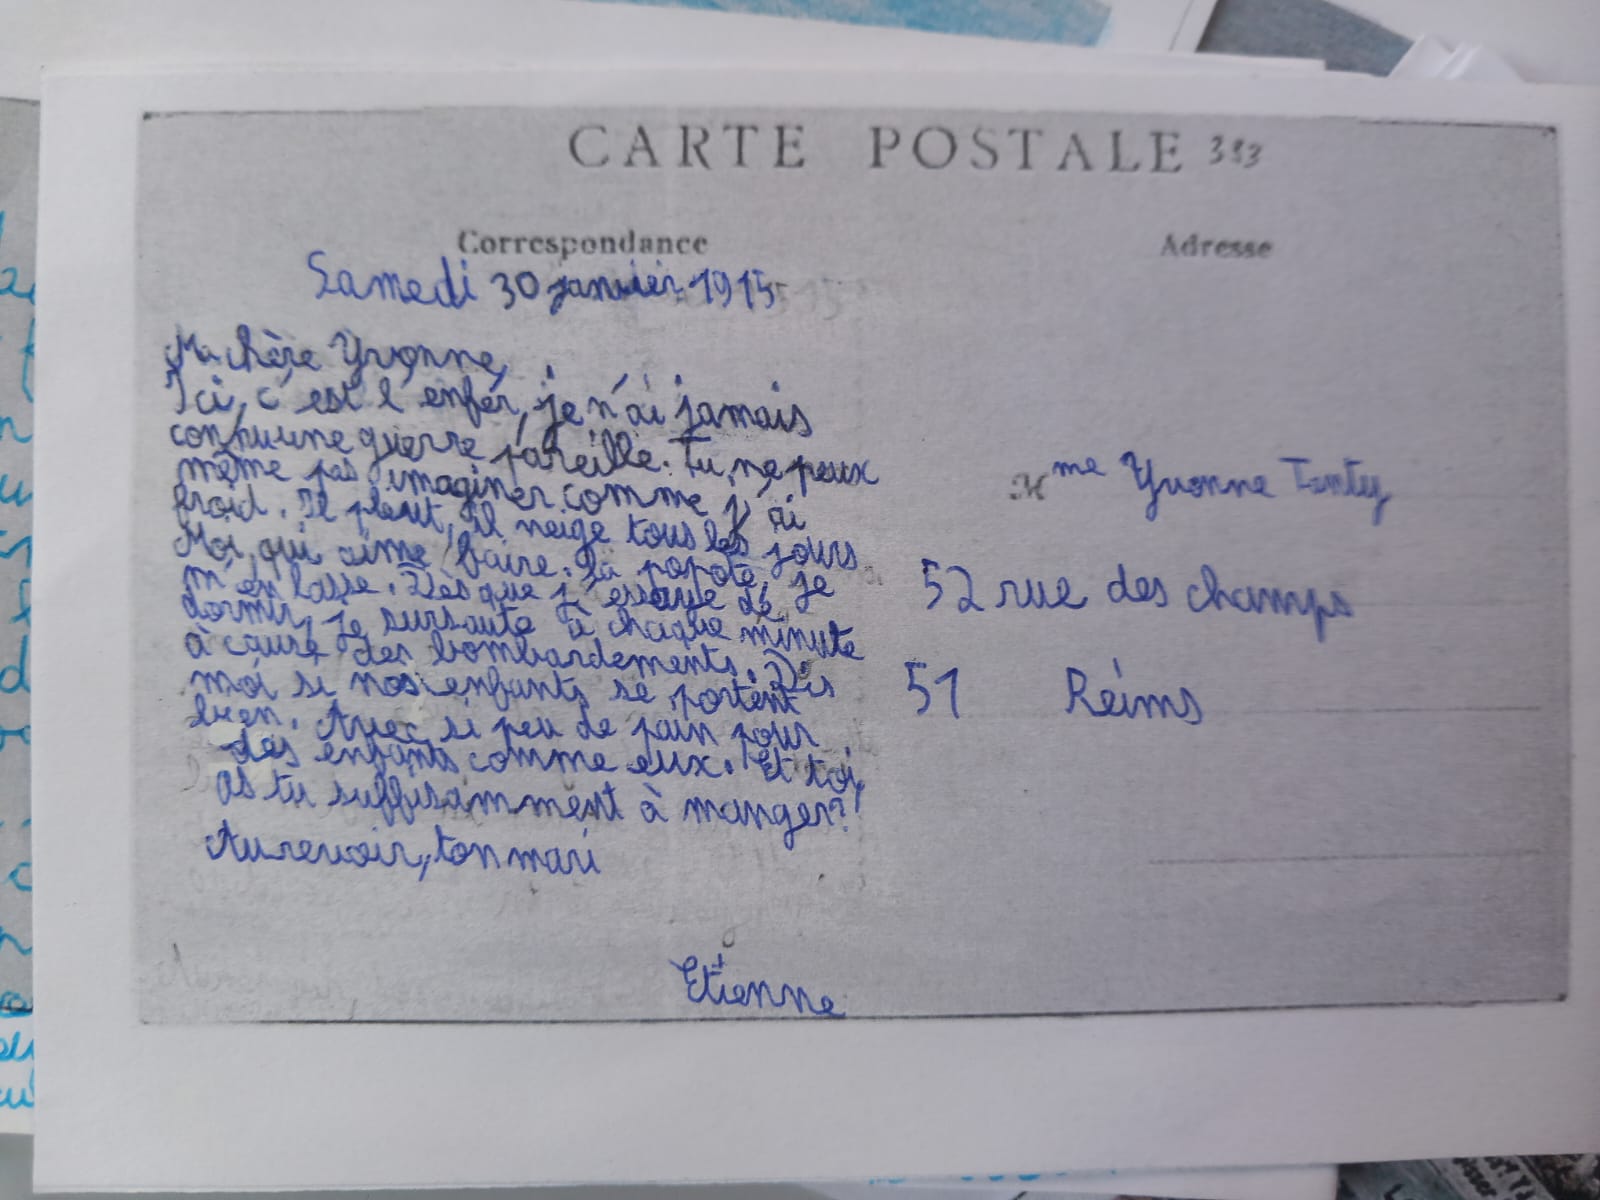 CARTE POSTALE 383
Correspondance
Adresse
Samedi 30 janvier 1915
Ma chère Yvonne,
Ici, c'est l'enfer, je n'ai jamais
connu une guerre pareille. Tu ne peux
même pas imaginer comme j'ai
froid. Il pleut, il neige tous les jours.
Moi, qui aime faire la popote, je
m'en lasse. Dès que j'essaye de
dormir, je sursaute à chaque minute
à cause des bombardements. Dis
moi si nos enfants se portent
bien. Avec si peu de pain pour
des enfants comme eux. Et toi,
as tu suffisamment à manger?
Au revoir, ton mari
Etienne
Mme Yvonne Tanty
52 rue des champs
51 Reims